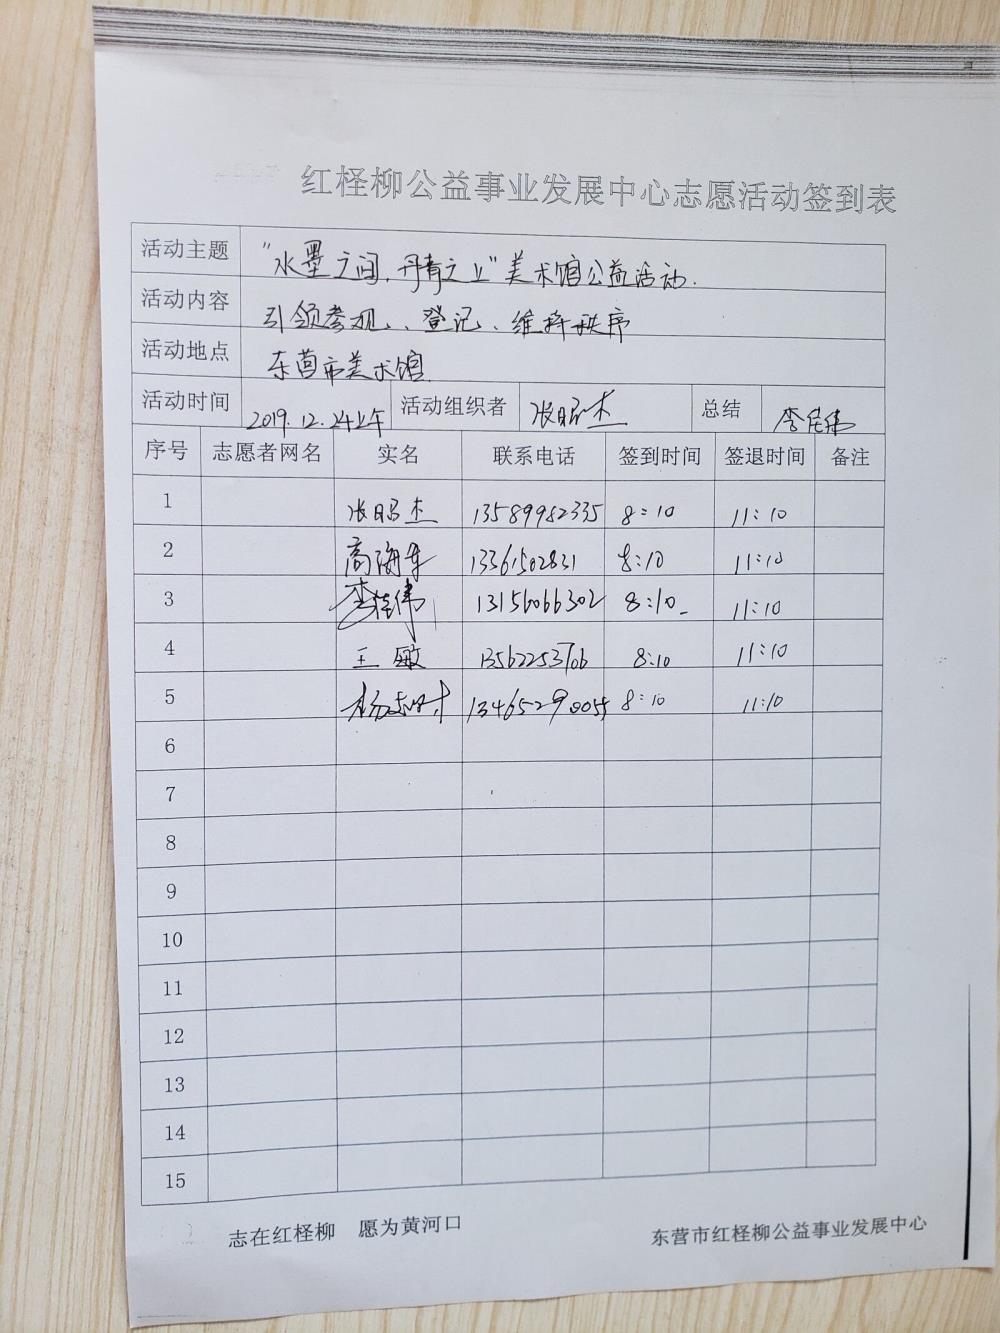 红柽柳公益事业发展中心志愿活动签到表
活动主题 "水墨之间,丹青之上"美术馆公益活动.
活动内容 引领参观、、登记、维持秩序
活动地点 东营市美术馆
活动时间 2019.12.24上午 活动组织者 张昭杰 总结 李佳伟
序号 志愿者网名 实名 联系电话 签到时间 签退时间 备注
1 张昭杰 13589982335 8:10 11:10
2 高海军 13361502831 8:10 11:10
3 李佳伟 13156066302 8:10 11:10
4 王敏 13562253706 8:10 11:10
5 杨 13465290055 8:10 11:10
6
7
8
9
10
11
12
13
14
15
志在红柽柳 愿为黄河口 东营市红柽柳公益事业发展中心